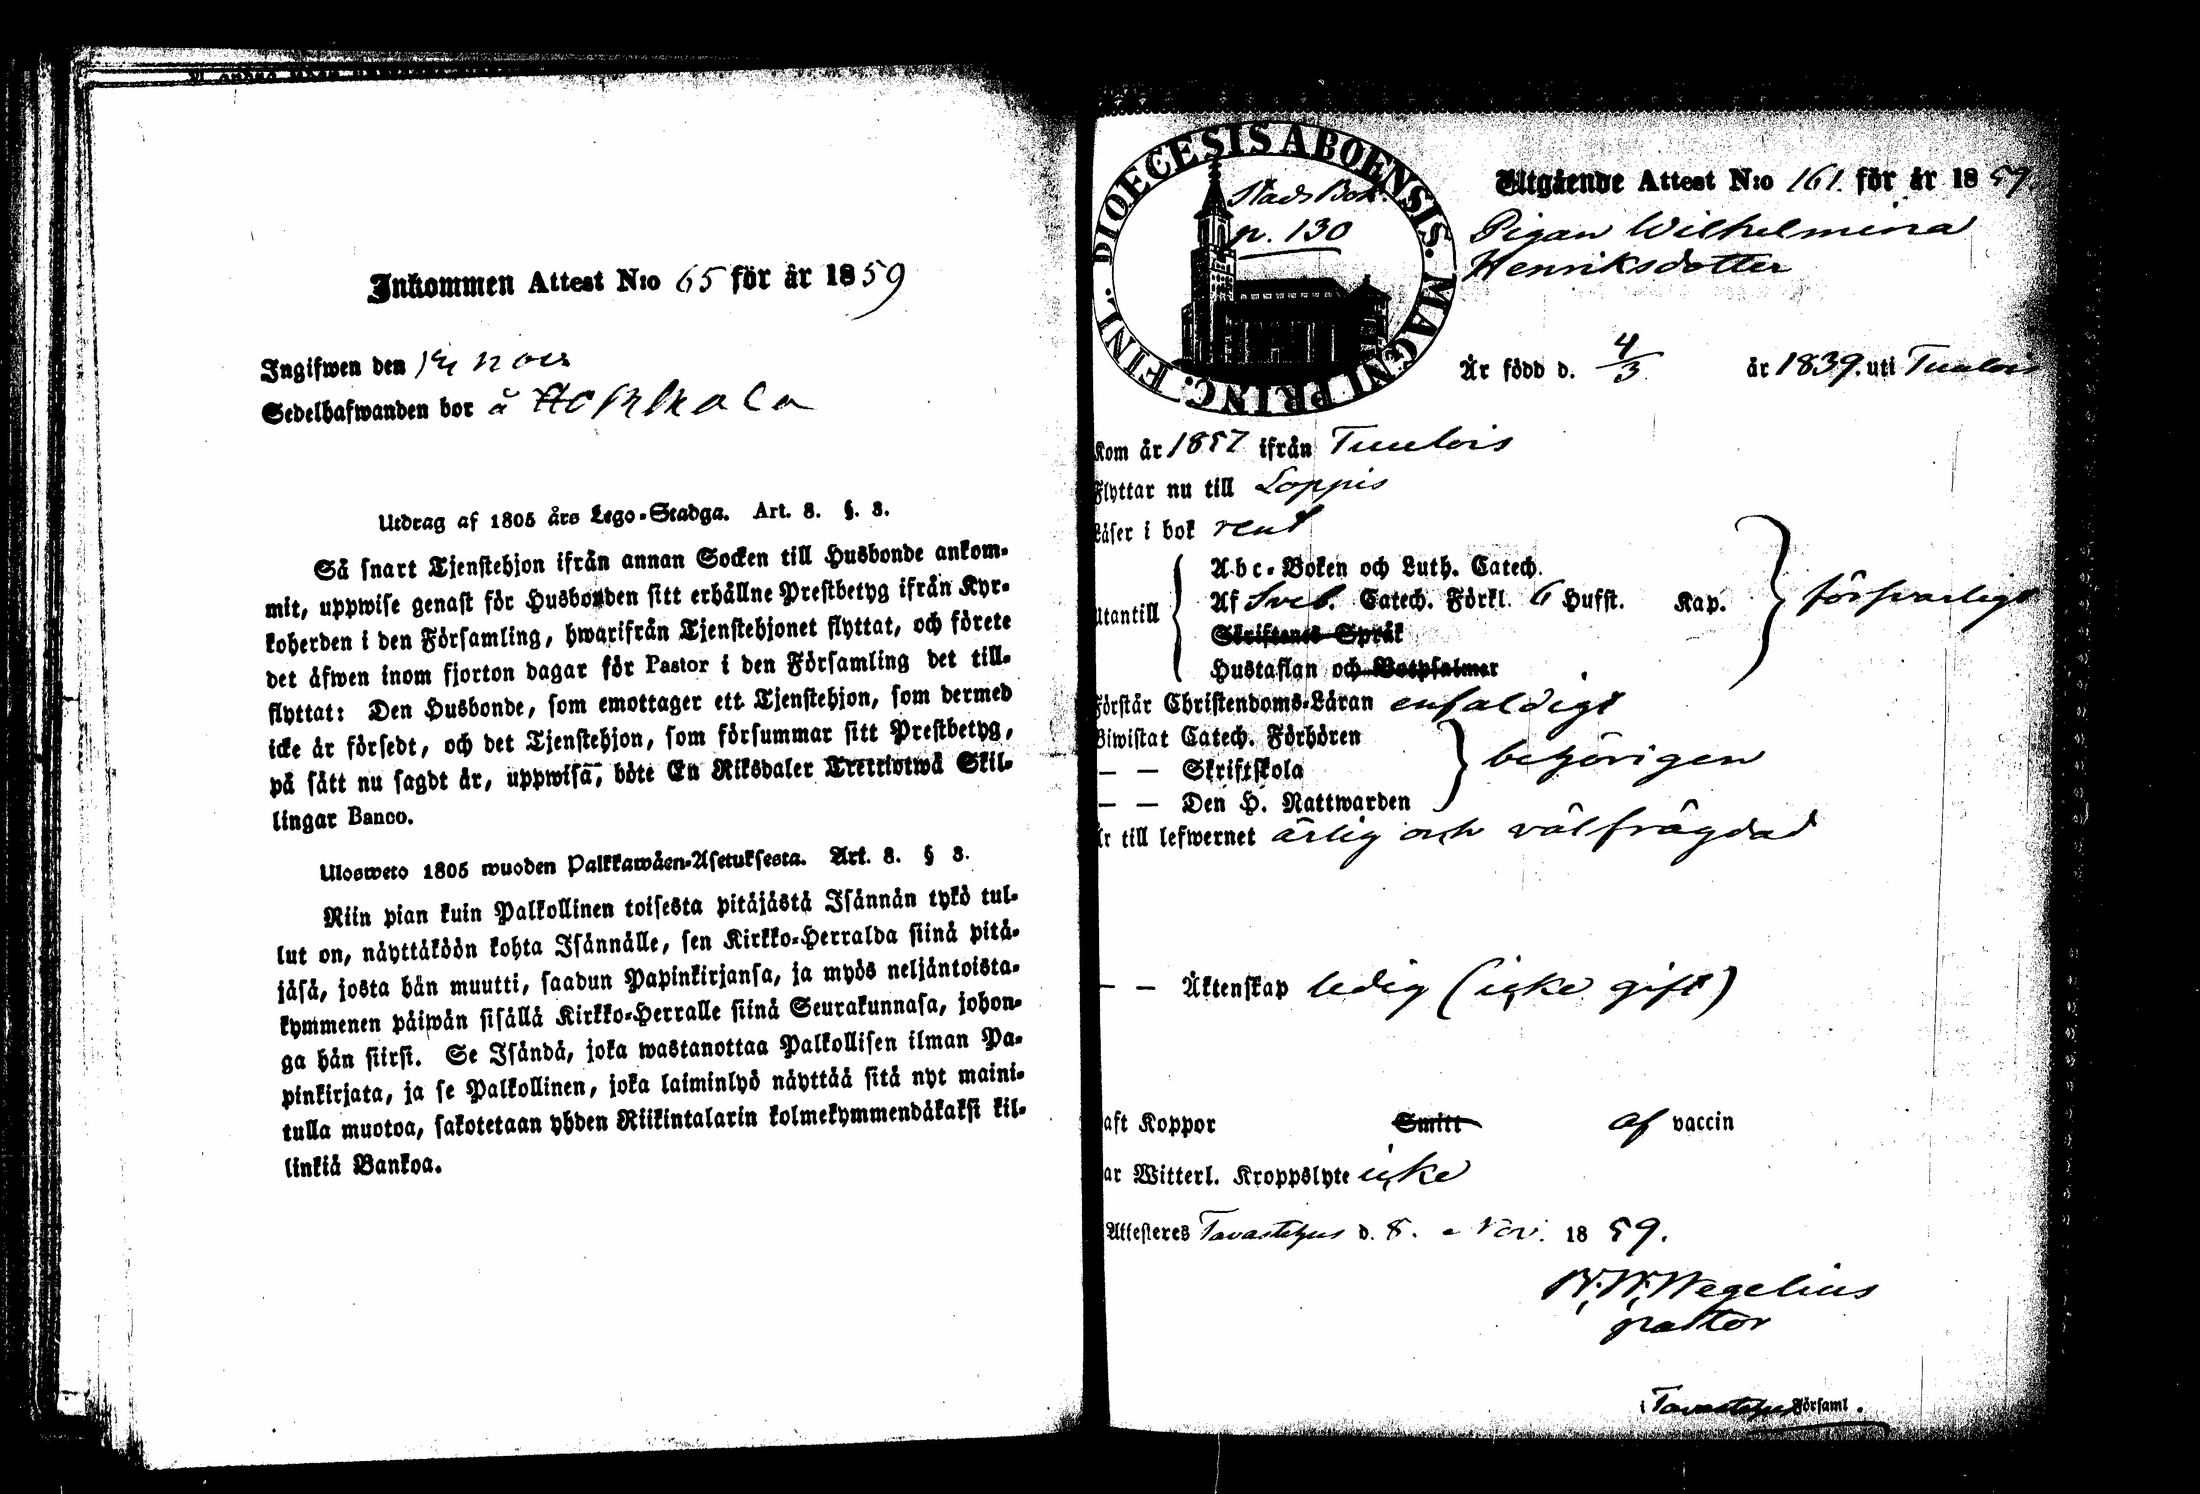 Inkommen Attest N:o 65 för år 1859
Ingifwen den nov
Sedelhafwanden bor å
Utdrag af 1805 års Lego-Stadga. Art. 8. §. 3.
Så snart Tjenstehjon ifrån annan Socken till Husbonde ankom-
mit, uppwise genast för Husbonden sitt erhållne Prestbetyg ifrån Kyr-
koherden i den Församling, hwarifrån Tjenstehjonet flyttat, och förete
det äfwen inom fjorton dagar för Pastor i den Församling det till-
flyttat: Den Husbonde, som emottager ett Tjenstehjon, som dermed
icke är försedt, och det Tjenstehjon, som försummar sitt Prestbetyg,
på sätt nu sagdt är, uppwisa, böte En Riksdaler Trettiotwå Skil-
lingar Banco.
Uloswето 1805 wuoden Palkkawäen-Asetuksesta. Art. 8. § 3.
Niin pian kuin Palkollinen toisesta pitäjästä Isännän tykö tul-
lut on, näyttäköön kohta Isännälle, sen Kirkko-Herralda siinä pitä-
jäsä, josta hän muutti, saadun Papinkirjansa, ja myös neljäntoista-
kymmenen päiwän sisällä Kirkko-Herralle siinä Seurakunnasa, johon-
ga hän siirsi. Se Isändä, joka wastanottaa Palkollisen ilman Pa-
pinkirjata, ja se Palkollinen, joka laiminlyö näyttää sitä nyt maini-
tulla muotoa, sakotetaan yhden Riikintalarin kolmekymmendäkaksi kil-
linkiä Bankoa.
DIOECESIS ABOENSIS. MAGNI PRINC. FINL.
Stads Bok.
p. 130
Utgående Attest N:o 161. för år 1859.
Pigan Wilhelmina
Henriksdotter
Är född d. 4/3 år 1839. uti Tuulois
Kom år 1857 ifrån Tuulois
Flyttar nu till Loppis
Läser i bok rent
Utantill
Abc-Boken och Luth. Catech.
Af Sveb. Catech. Förkl. 6 Hufst. Kap. försvarligt
Skriftenes Språk
Hustaflan och Botpsalmer
Förstår Christendoms-Läran enfaldigt
Biwistat Catech. Förhören
— — Skriftskola behörigen
— — Den H. Nattwarden
Är till lefwernet ärlig och välfrägdad
— — Äktenskap ledig (icke gift)
aft Koppor Smitt af vaccin
ar Witterl. Kroppslyte icke
Attesteres Tavastehus d. 8. Nov. 1859.
Wegelius
pastor
i Tavastehus Församl.